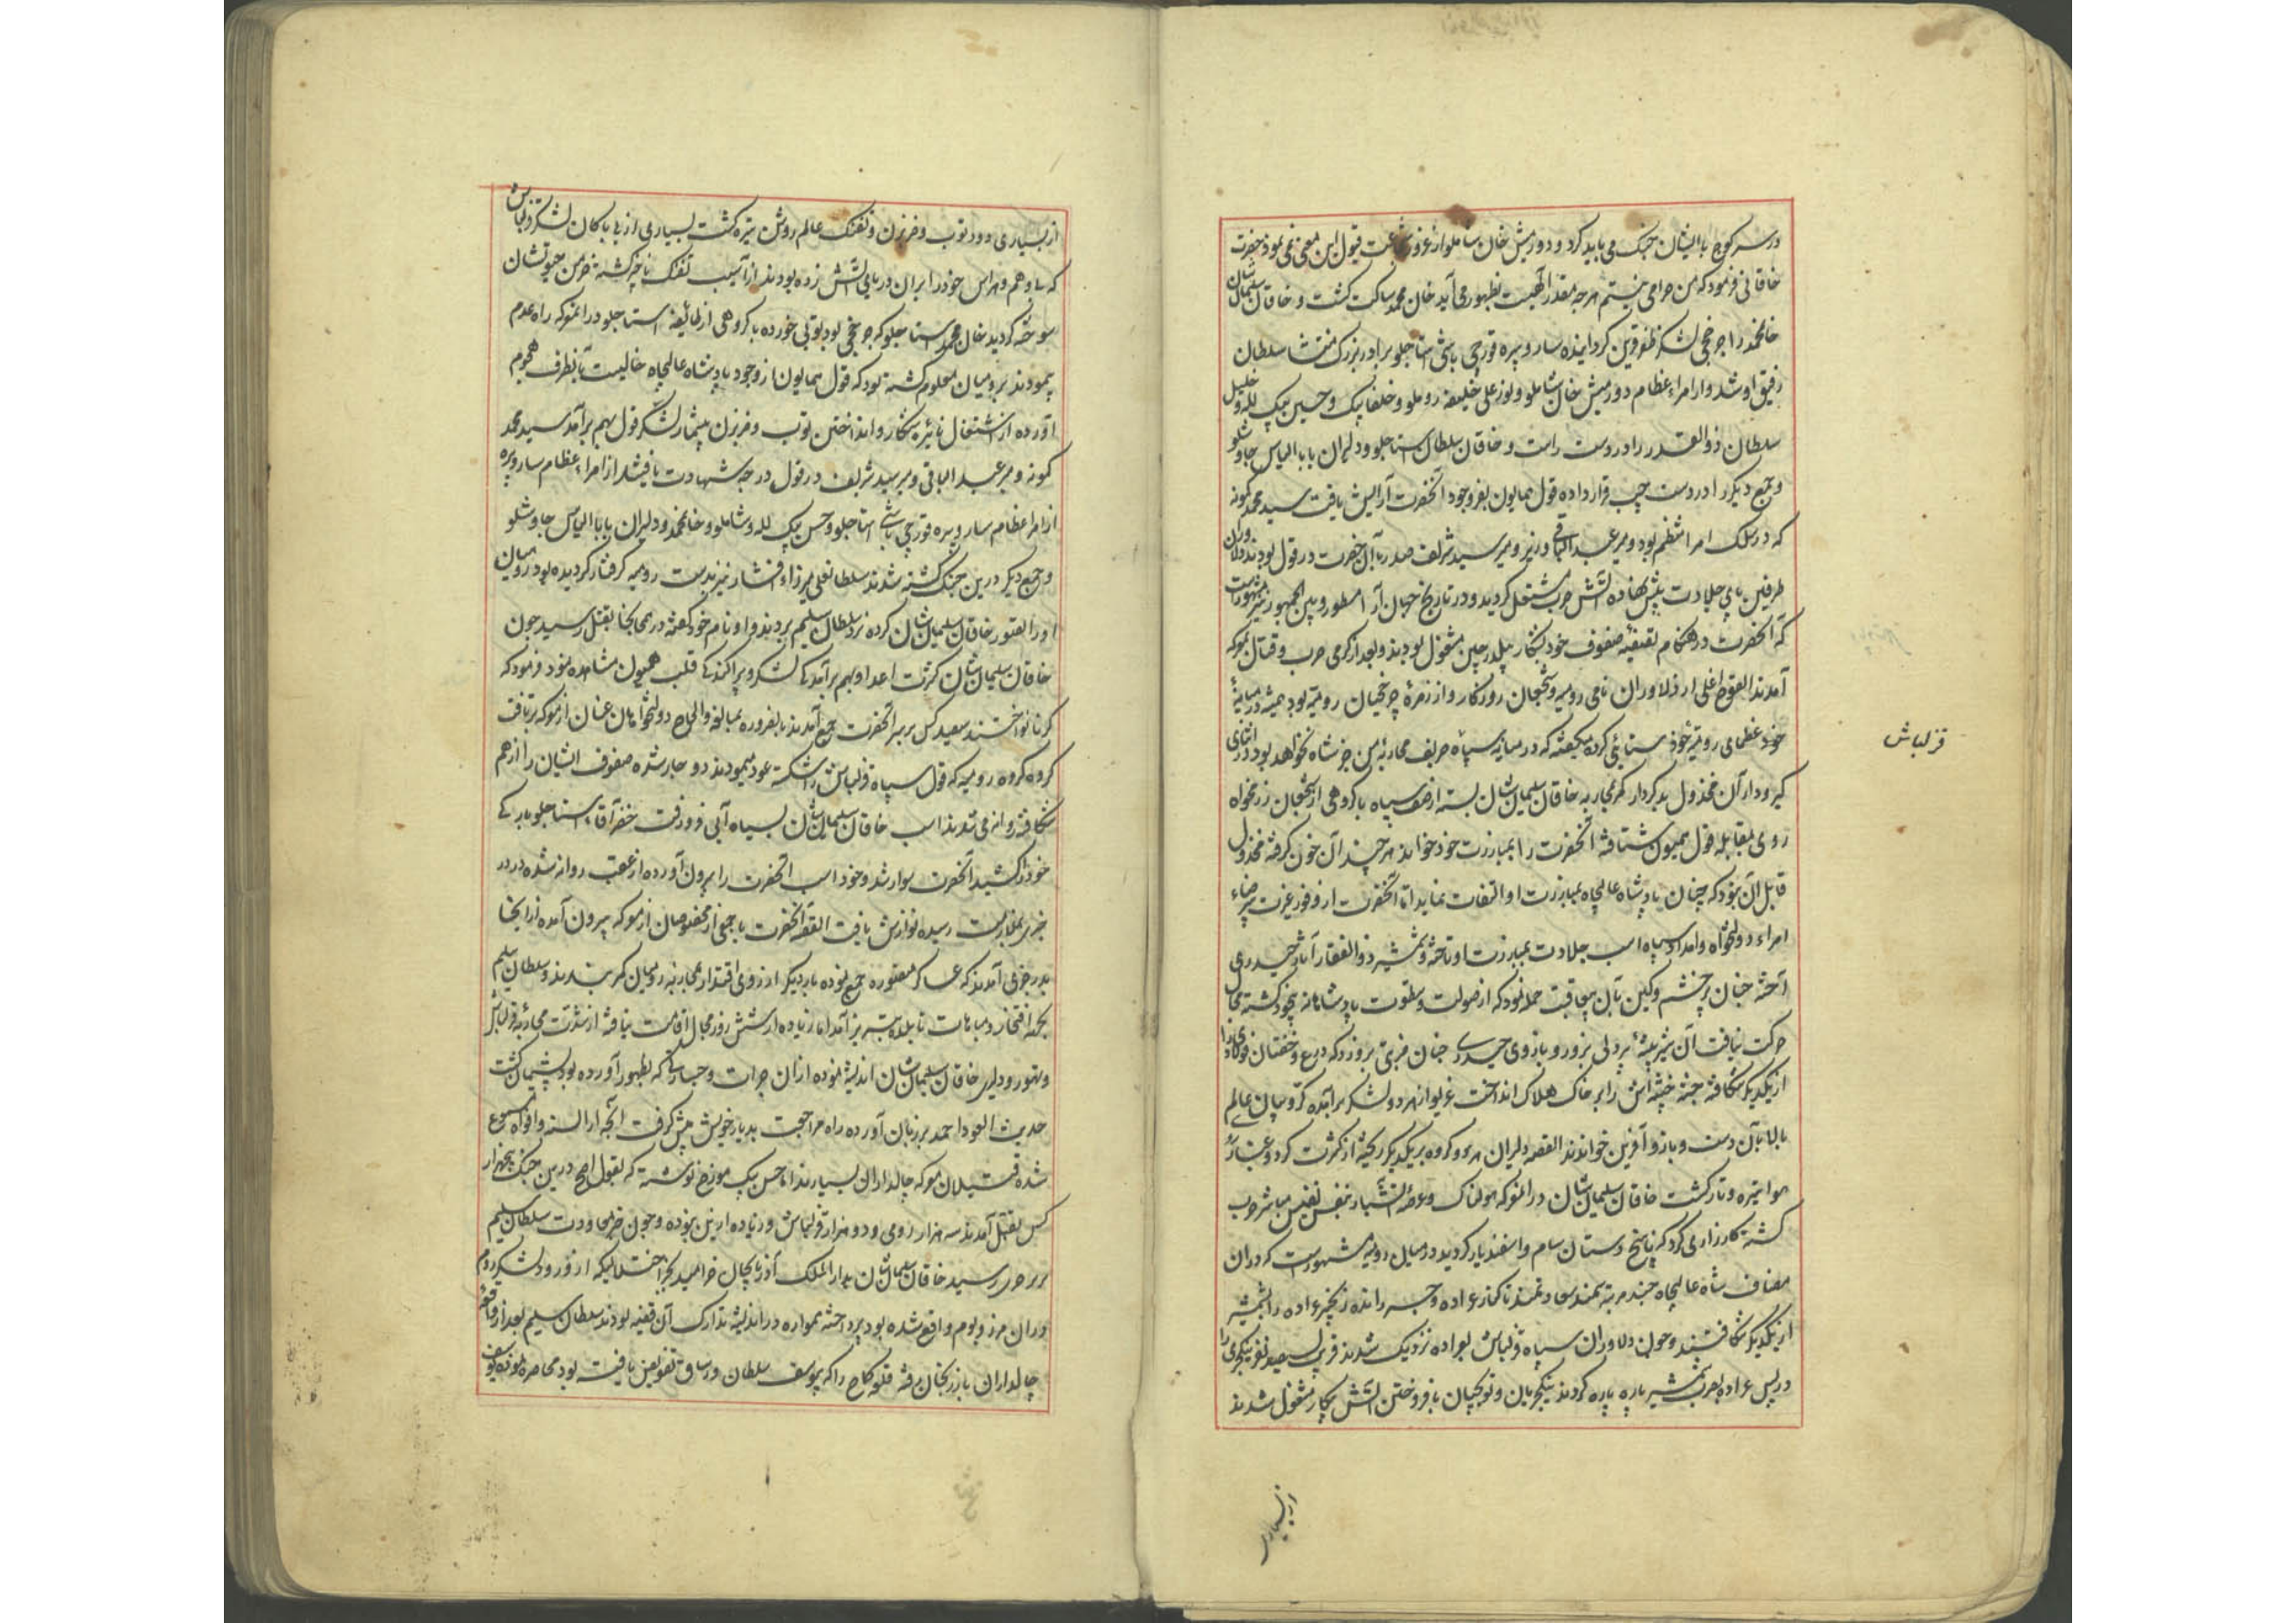 در سر کوچ با ایشان جنک می باید کرد و دورمیش خان شاملو از غرور شجاعت قبول این معنی نمی نمود حضرت
خاقانی فرمود که من حرامی نیستم هرچه مقدر آلهیست بظهور می آید خان محمد ساکت کشت و خاقان سلیمان شان
خانمحمد را چرخچی لشکر ظفر قرین کردانیده سارو پیره قورچی باشی استاجلو برادر بزرک منتشا سلطان
رفیق او شد و از امراء عظام دورمیش خان شاملو و نور علی خلیفه روملو و خلفا بیک و حسین بیک لله و خلیل
سلطان ذوالقدر را در دست راست و خاقان سلطان استاجلو و دلیران بابا الیاس چاوشلو
و جمع دیکر را در دست چپ قرار داده قول همایون بفر وجود آنحضرت آرایش یافت سید محمد کمونه
که در سلک امرا منتظم بود و میر عبد الباقی وزیر و میر سید شریف صدر با آن حضرت در قول بودند دلاوران
طرفین پای جلادت پیش نهاده آتش حرب مشتعل کردید و در تاریخ جهان آرا مسطور و بین الجمهور نیز مشهورست
که آنحضرت در هنکام تصفیهٔ صفوف خود بشکار بلدرچین مشغول بودند و بعد از کرمی حرب و قتال بمعرکه
آمدند القوچ اغلی از دلاوران نامی رومیه و شجعان روزکار و از زمرهٔ چرخچیان رومیه بود همیشه در میانهٔ
خود عظمای رومیه خود ستایئی کرده میکفته که در میانه سپاه حریف محاربه من جز شاه نخواهد بود در اثنای
کیرودار آن مخذول بدکردار کمر محاربه خاقان سلیمان شان بسته از صف سپاه با کروهی از شجعان رزمخواه
روی بمقابله قول همیون شتافته آنحضرت را بمبارزت خود خواند هرچند آن خون کرفته مخذول
قابل آن نبود که چنان پادشاه عالیجاه بمبارزت او التفات نماید اما آنحضرت از وفور غیرت بی رضاء
امراء دولتخواه و امداد سپاه اسب جلادت بمبارزت او تاخته و شمشیر ذوالفقار آثار حیدری
آخته چنان پرخشم و کین بآن بیعاقبت حمله نمود که از صولت و سطوت پادشاهانه بیخود کشته مجال
حرکت نیافت آن شیر بیشهٔ پردلی بزور و بازوی حیدری چنان ضربتی برو زد که درع و خفتان فولاد را
از یکدیکر شکافته جثه خبیثه اش را بر خاک هلاک انداخت غریو از هر دو لشکر برآمده کروبیان عالم
بالا بآن دست و بازو آفرین خواندند القصه دلیران هر دو کروه بر یکدیکر ریخته از کثرت کرد و غبار روی
هوا تیره و تار کشت خاقان سلیمان شان در المعرکه هولناک و عرصهٔ آتشبار بنفس نفیس مباشر حرب
کشته کارزار می کرد که ناسخ دستان سام و اسفندیار کردید در میان رومیه مشهورست که در ان
مصاف شاه عالیجاه چند مرتبه سمند سعادتمند تا کنار عراده و چپر رانده زنجیر عراده را بشمشیر
از یکدیکر شکافتند و چون دلاوران سپاه قزلباش بعراده نزدیک شدند قریب بسیصد نفر ینکچری را
در پس عراده بضرب شمشیر پاره پاره کردند ینکچریان و توپچیان بافروختن آتش پیکار مشغول شدند
از بسیاری
قزلباش
از بسیاری دود توپ و ضربزن و تفنک عالم روشن تیره کشت بسیاری از بی باکان لشکر قزلباش
که بی وهم و هراس خود را بران دریای آتش زده بودند از آسیب تفنک ناچیز کشته خرمن حیوتشان
سوخته کردید خان محمد استاجلو که چرخچی بود توپی خورده با کروهی از طایفه استاجلو در المعرکه راه عدم
پیمودند بر رومیان معلوم کشته بود که قول همایون از وجود پادشاه عالیجاه خالیست بآنطرف هجوم
آورده از اشتعال نائره پیکار و انداختن توپ و ضربزن بیشمار لشکر قول بهم برآمد سید محمد
کمونه و میر عبد الباقی و میر سید شریف در قول درجه شهادت یافتند از امراء عظام سارو پیره
از امراء عظام سارو پیره قورچی باشی استاجلو و حسن بیک لله و شاملو و خانمحمد و دلیران بابا الیاس چاوشلو
و جمع دیکر درین جنک کشته شدند سلطانعلی میرزاء افشار نیز بدست رومیه کرفتار کردیده بود رومیان
او را بتصور خاقان سلیمان شان کرده نزد سلطان سلیم بردند و او نام خود کفته در همانجا بقتل رسید چون
خاقان سلیمان شان کثرت اعدا و بهم برآمدکی لشکر و پراکندکی قلب همیون مشاهده نمود فرمود که
کرنا نواختند سیصد کس بر سر آنحضرت جمع آمدند بالضروره بمبالغه والحاح دولتخواهان عنان از معرکه برتافت
کروه کروه رومیه که قول سپاه قزلباش را شکسته عود مینمودند دوچار شده صفوف ایشان را از هم
شکافته روانه می شدند اسب خاقان سلیمان شان بسیاه آبی فرو رفت خضر آقاء استاجلو بارکی
خود را کشید آنحضرت سوار شد و خود اسب آنحضرت را بیرون آورده از عقب روانه شده در در
جزین بملازمت رسیده نوازش یافت القصه آنحضرت با جمعی از مخصوصان از معرکه بیرون آمده از آنجا
بدرجزین آمدند که عساکر منصوره جمع نموده بار دیکر از روی اقتدار بمحاربه رومیان کمر بندند و سلطان سلیم
بجهة افتخار و مباهات تا بلده تبریز آمد اما زیاده از شش روز مجال اقامت نیافته از شدت محاربه قزلباش
و تهور و دلیری خاقان سلیمان شان اندیشه نموده از ان جرات و جسارتی که بظهور آورده بود پشیمان کشت
حدیث العود احمد بر زبان آورده راه مراجعت بدیار خویش پیش کرفت آنچه از السنه و افواه مسموع
شده قتیلان معرکه چالداران بسیارند اما حسن بیک مورخ نوشته که بقول اصح درین جنک پنجهزار
کس بقتل آمدند سه هزار رومی و دو هزار قزلباش و زیاده ازین نبوده و چون خبر معاودت سلطان سلیم
بدرجزین رسید خاقان سلیمان شان بدار الملک آذربایجان خرامید بجبر اختلالیکه از ورود لشکر روم
در ان مرز و بوم واقع شده بود پرداخته همواره در اندیشهٔ تدارک آن قضیه بودند سلطان سلیم بعد از واقعه
چالداران بارزنجان رفته قلعه کماخ را که بیوسف سلطان ورساق تفویض یافته بود محاصره نموده یوسف